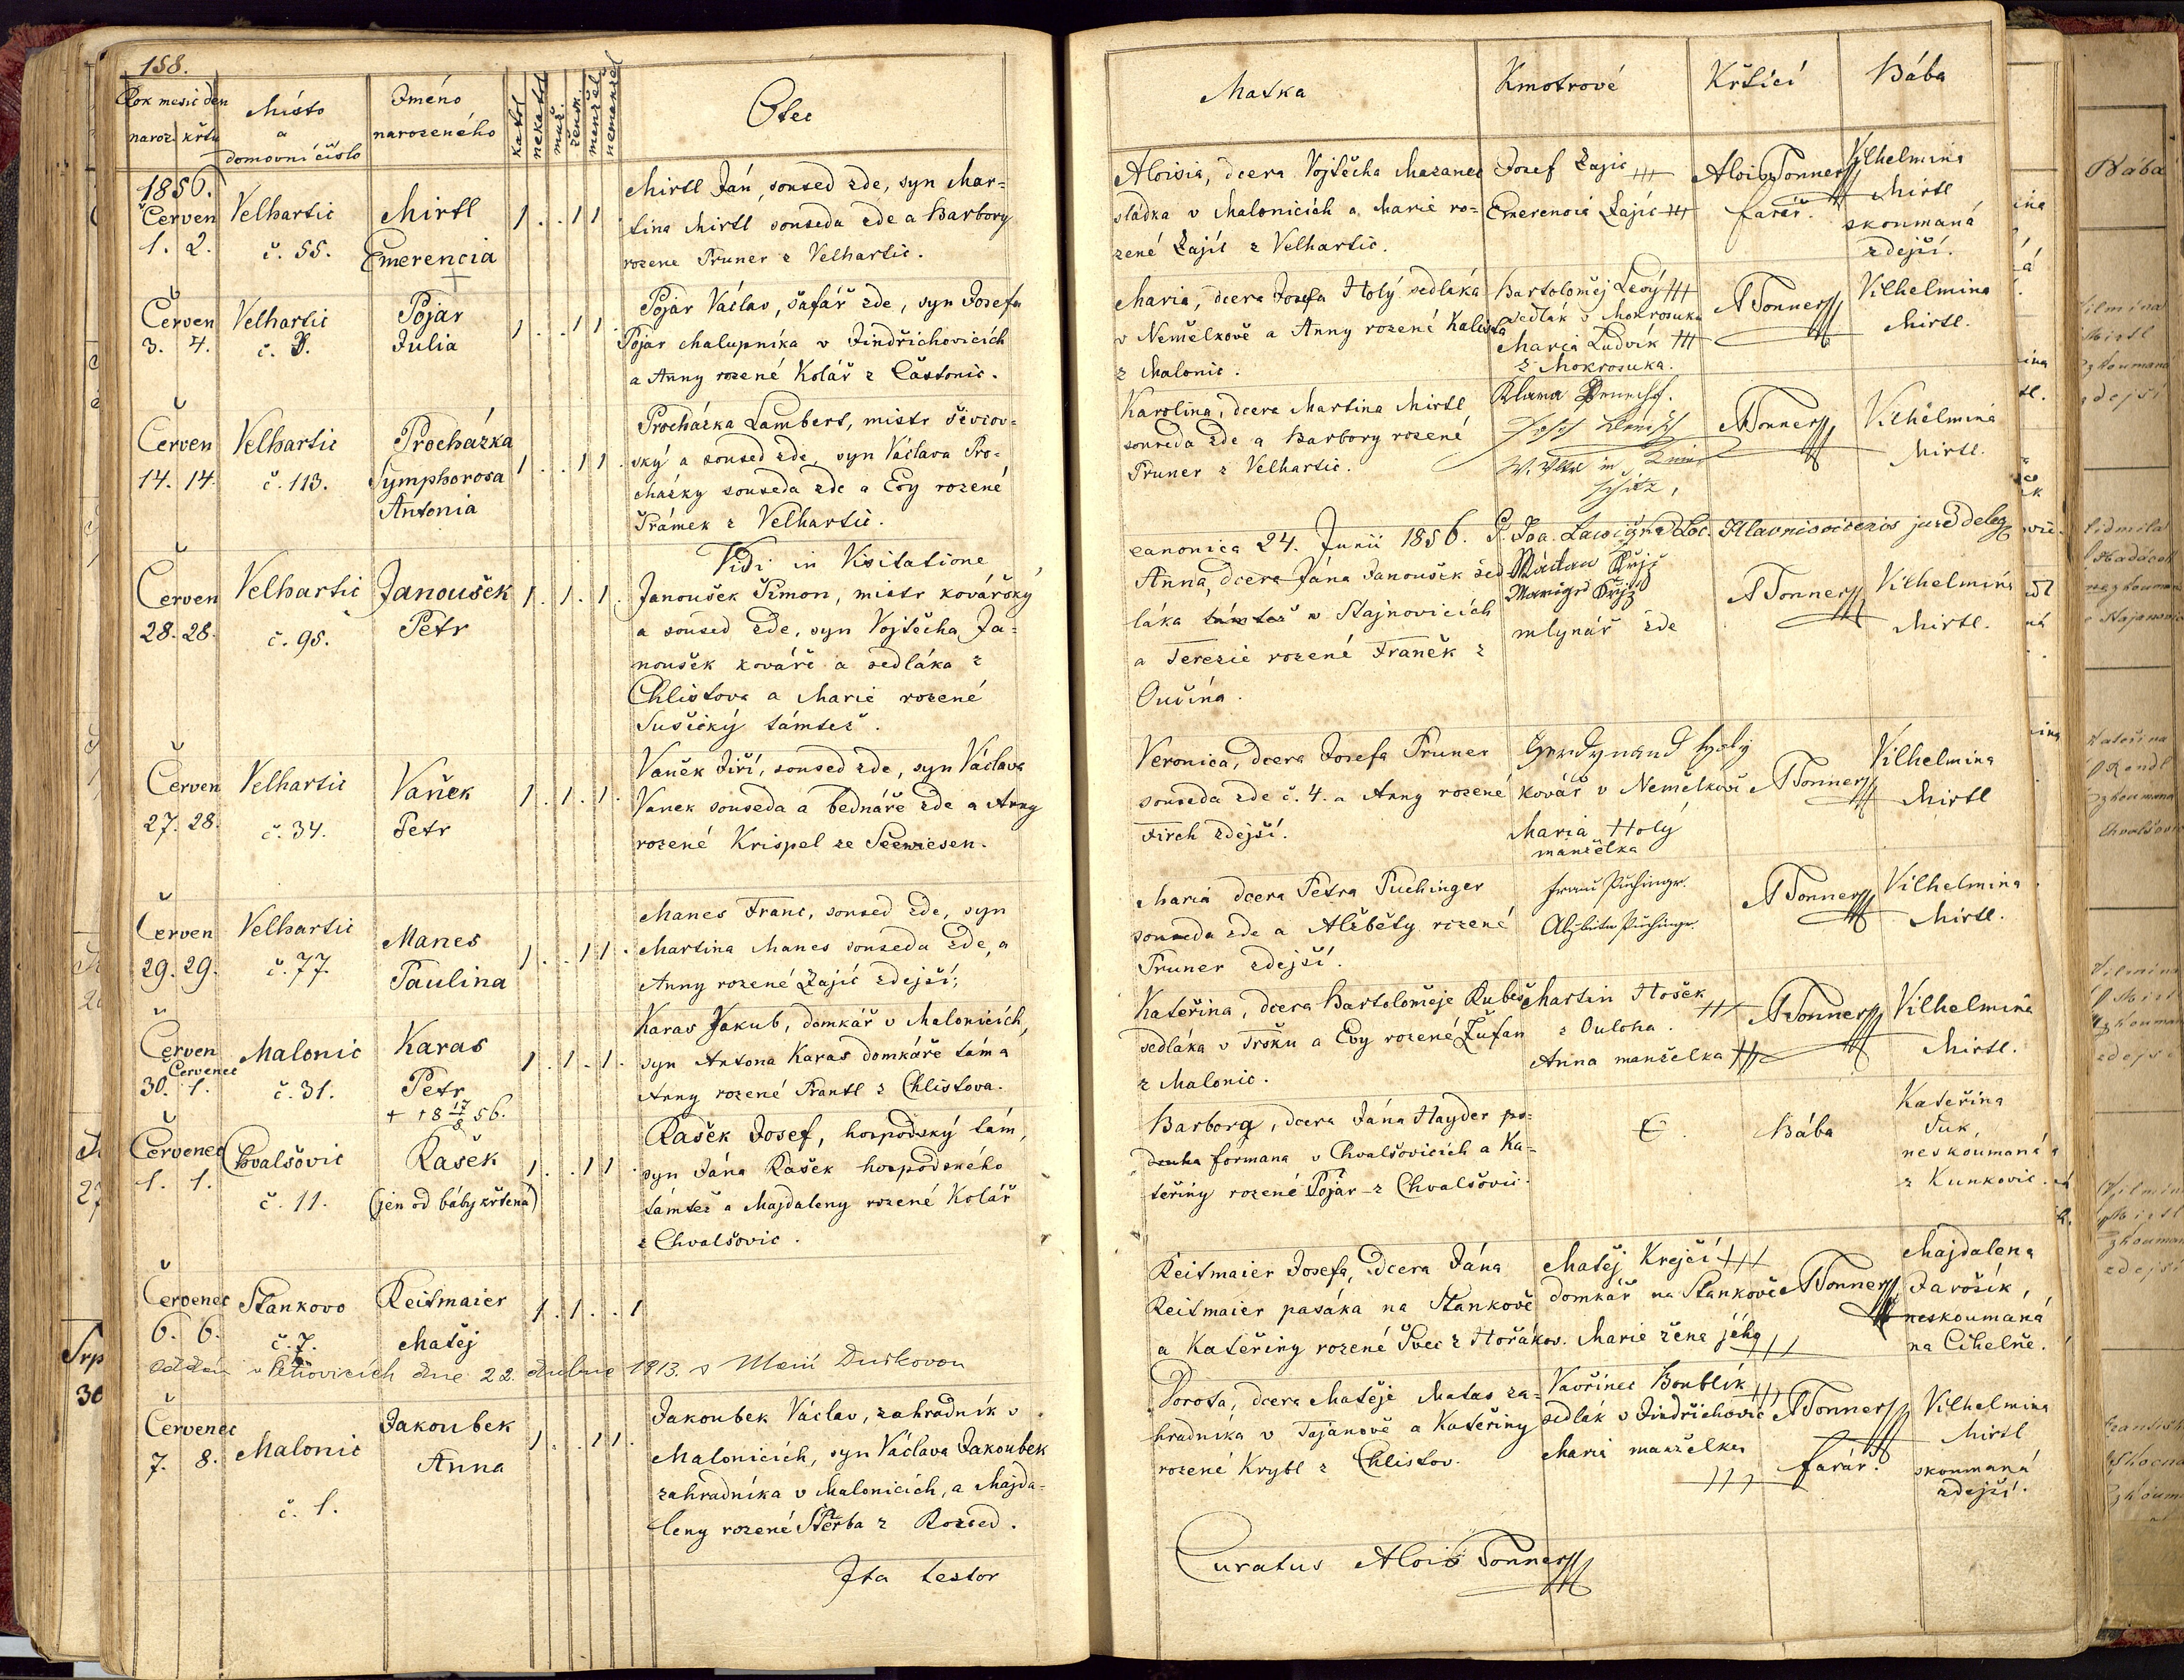 158.
Rok mesic den
naroz. křtu
Místo
a
domovní číslo
Jméno
narozeného
katol
nekatol
muž.
žensk.
manžel
nemanžel
Otec
Matka
Kmotrové
Křtící
Bába
1856.
Červen
1. 2.
Velhartic
č. 55.
Mirtl
Emerencia
+
1 . . 1 1 .
Mirtl Ján, soused zde, syn Mar=
tina Mirtl souseda zde a Barbory
rozene Pruner z Velhartic.
Aloisia, dcera Vojtěcha Mazanec
sládka v Malonicích a Marie ro=
zené Zajíc z Velhartic.
Josef Zajic +++
Emerencia Zajíc +++
Alois Tonner
farář.
Vilhelmina
Mirtl
skoumaná
zdejší.
Červen
3. 4.
Velhartic
č. 3.
Pojar
Julia
1 . . 1 1 .
Pojar Václav, šafář zde, syn Josefa
Pojar chalupníka v Jindřichovicích
a Anny rozené Kolář z Častonic.
Maria, dcera Josefa Holý sedláka
v Nemělkově a Anny rozené Kalista
z Malonic.
Bartoloměj Levý +++
sedlák v Mokrosuku
Maria Ludvík +++
z Mokrosuka.
A Tonner
Vilhelmina
Mirtl.
Červen
14. 14.
Velhartic
č. 113.
Procházka
Symphorosa
Antonia
1 . . 1 1 .
Procházka Lambert, mistr ševcov=
ský a soused zde, syn Václava Pro=
cházky souseda zde a Evy rozené
Šrámek z Velhartic.
Karolina, dcera Martina Mirtl
souseda zde a Barbory rozené
Pruner z Velhartic.
A Tonner
Vilhelmina
Mirtl.
Vidi in Visitatione
canonica 24. Junii 1856.
Červen
28. 28.
Velhartic
č. 95.
Janoušek
Petr
1 . 1 . 1 .
Janoušek Šimon, mistr kovářský
a soused zde, syn Vojtěcha Ja=
noušek kováře a sedláka z
Chlistova a Marie rozené
Sušický támtež.
Anna, dcera Jána Janoušek sed
láka támtež v Stajnovicích
a Terezie rozené Franěk z
Oučína.
mlynář zde
A Tonner
Vilhelmina
Mirtl.
Červen
27. 28.
Velhartic
č. 34.
Vaněk
Petr
1 . 1 . 1 .
Vaněk Jiří, soused zde, syn Václava
Vanek souseda a bednáře zde a Anny
rozené Krispel ze Seewiesen.
Veronica, dcera Josefa Pruner
souseda zde č. 4. a Anny rozené
Firch zdejší.
Ferdynand Holy
kovář v Nemělkově
Maria Holý
manželka
A Tonner
Vilhelmina
Mirtl
Červen
29. 29.
Velhartic
č. 77.
Manes
Paulina
1 . . 1 1 .
Manes Franc, soused zde, syn
Martina Manes souseda zde, a
Anny rozené Zajíc zdejší;
Maria dcera Petra Puchinger
souseda zde a Alžběty rozené
Pruner zdejší.
A Tonner
Vilhelmina
Mirtl.
Červen
Červenec
30. 1.
Malonic
č. 31.
Karas
Petr
+ +8 17/8 56.
1 . 1 . 1 .
Karas Jakub, domkář v Malonicích,
syn Antona Karas domkáře tám a
Anny rozené Frantl z Chlistova.
Kateřina, dcera Bartoloměje Rubeš
sedláka v Trsku a Evy rozené Žufan
z Malonic.
Martin Hošek
z Ouloha. +++
Anna manželka +++
A Tonner
Vilhelmina
Mirtl.
Červenec
1. 1.
Chvalšovic
č. 11.
Rašek
(jen od báby křtená)
1 . . 1 1 .
Rašek Josef, hospodský tám,
syn Jána Rašek hospodského
támtež a Majdaleny rozené Kolář
z Chvalšovic.
Barbora, dcera Jána Hayder po=
formana v Chvalšovicích a Ka=
teřiny rozené Pojar z Chvalšovic.
Bába
Kateřina
Suk,
neskoumaná
z Kunkovic.
Červenec
6. 6.
Stankovo
č. 7.
Reitmaier
Matěj
1 . 1 . . 1
Reitmaier Josefa, dcera Jána
Reitmaier pasáka na Stankově
a Kateřiny rozené Švec z Hořákov.
Matěj Krejčí +++
domkář na Stankově
Marie žena jeho +++
A Tonner
Majdalena
Jarošík,
neskoumaná
na Cihelně.
oddán v Petrovicích dne 22. dubna 1913. s Marií Duskovou
Červenec
7. 8.
Malonic
č. 1.
Jakoubek
Anna
1 . . 1 1 .
Jakoubek Václav, zahradník v
Malonicích, syn Václava Jakoubek
zahradníka v Malonicích, a Majda=
leny rozené Štěrba z Rozsed.
Dorota, dcera Matěje Matas za=
hradníka v Tajánově a Kateřiny
rozené Krybl z Chlistov.
Vavřinec Boublík +++
sedlák v Jindřichovic
Maria manželka
+++
A Tonner
farář.
Vilhelmina
Mirtl
skoumaná
zdejší.
Ita testor
Curatus Alois Tonner